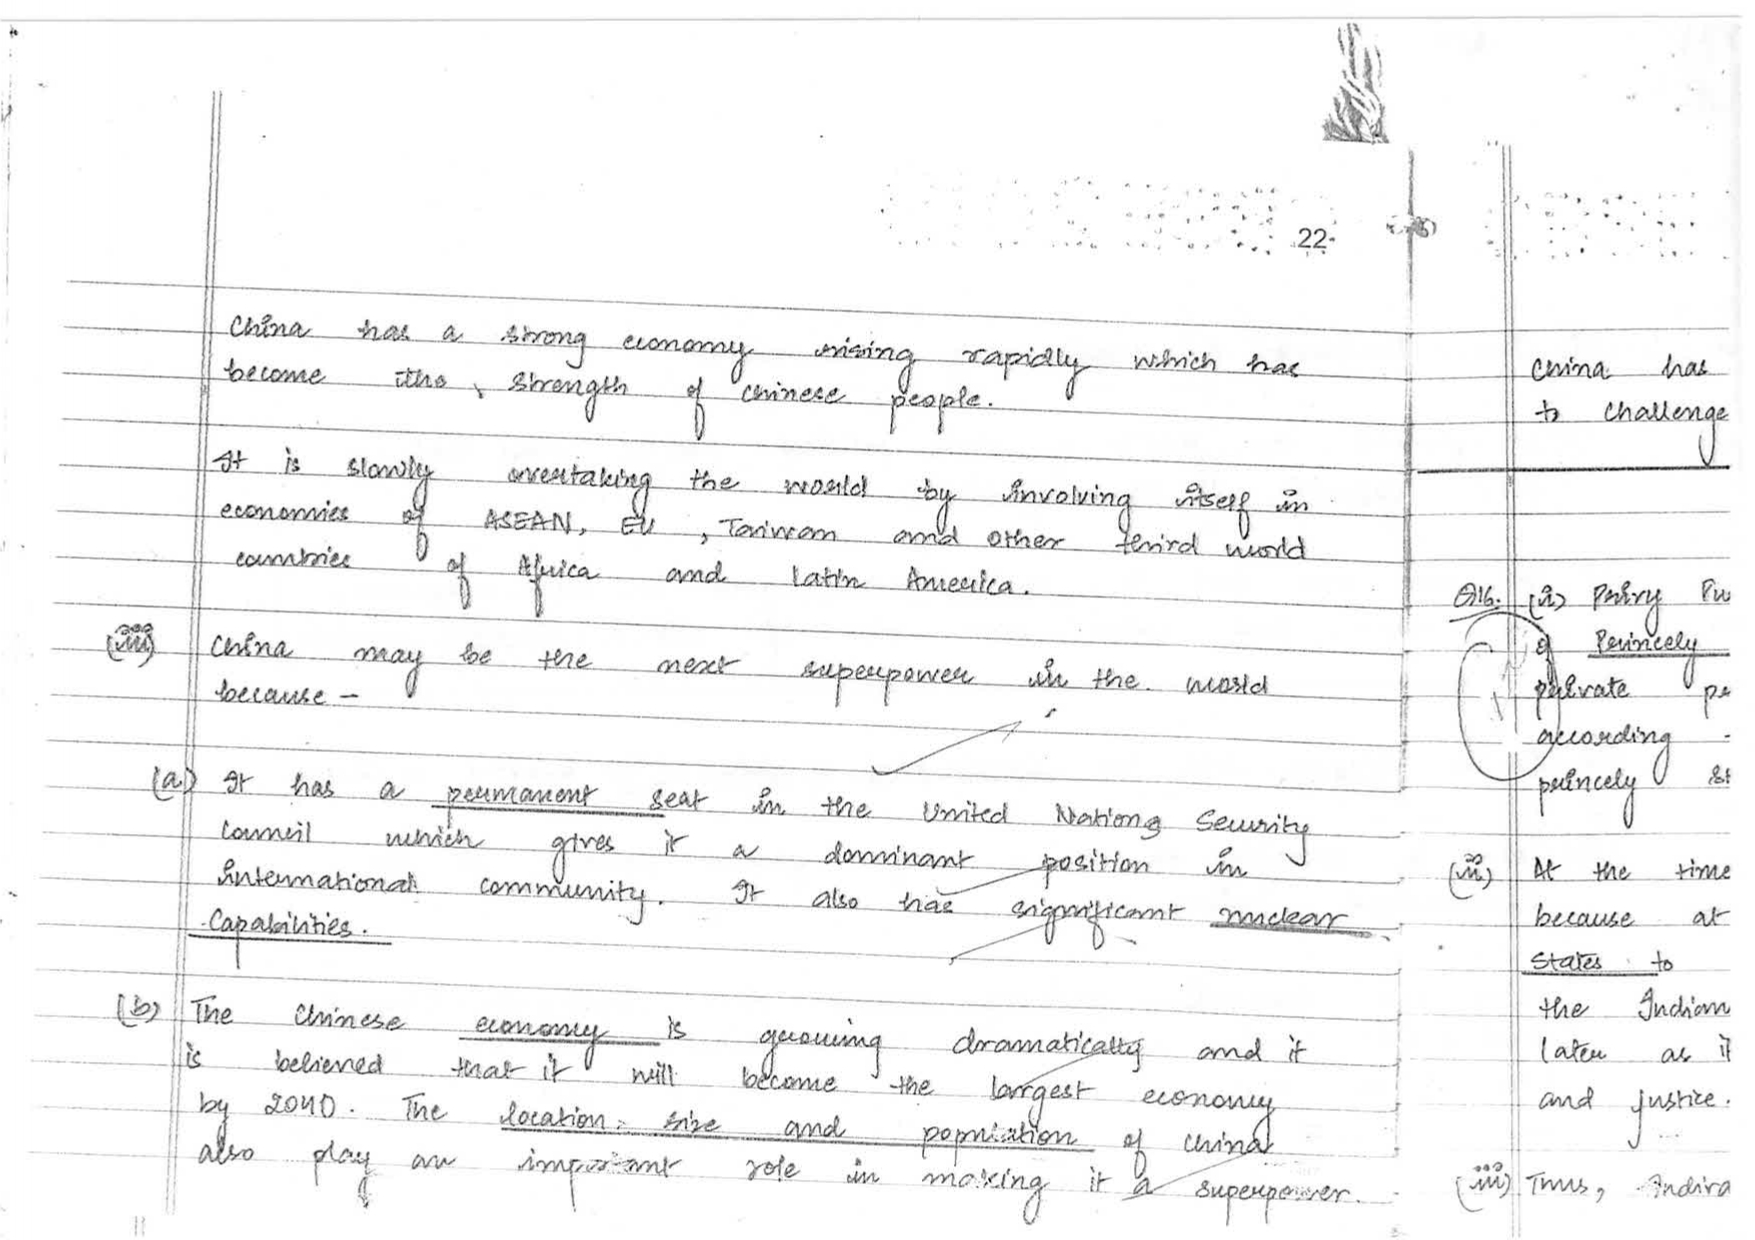 22
China has a strong economy rising rapidly which has
become the strength of Chinese people.
It is slowly overtaking the world by involving itself in
economies of ASEAN, EU, Taiwan and other third world
countries of Africa and Latin America.
(iii) China may be the next superpower in the world
because –
(a) It has a permanent seat in the United Nations Security
Council which gives it a dominant position in
international community. It also has significant nuclear
capabilities.
(b) The Chinese economy is growing dramatically and it
is believed that it will become the largest economy
by 2040. The location, size and population of China
also play an important role in making it a superpower.
China has
to challenge
Q16. (i) Privy Pu
of Princely
private pe
according
princely st
(ii) At the time
because at
States to
the Indian
later as it
and justice.
(iii) Thus, Indira